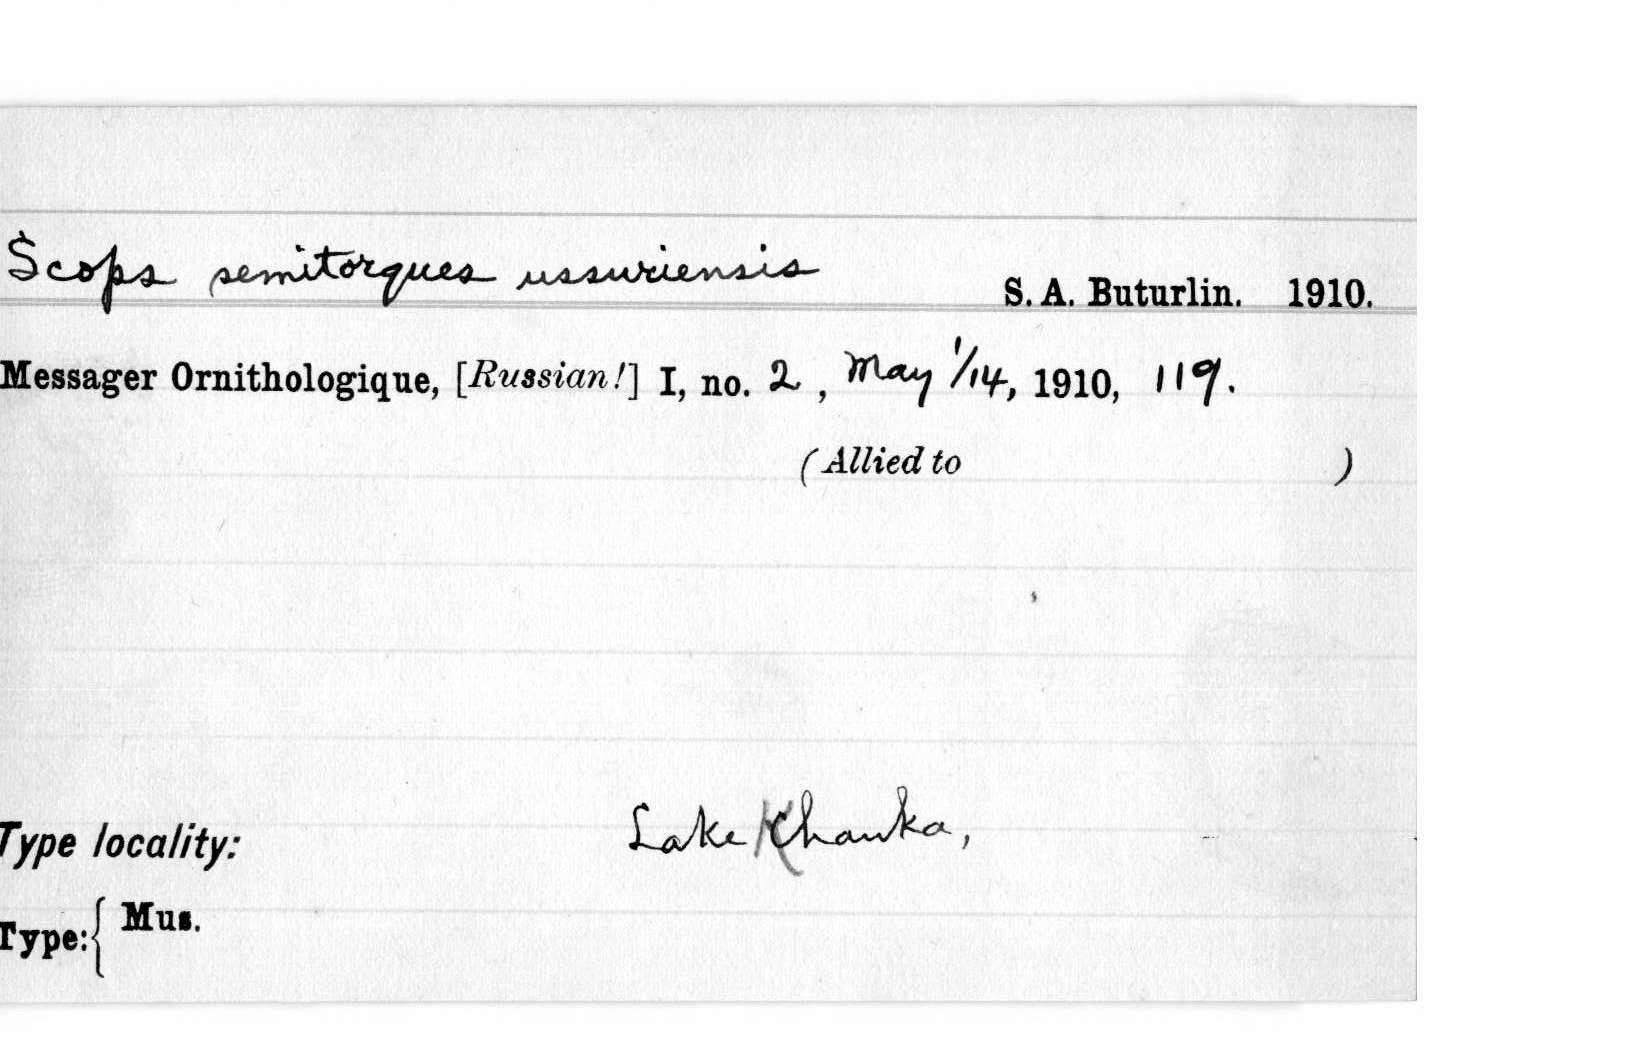 Scops semitorques ussuriensis
S. A. Buturlin. 1910.
Messager Ornithologique, [Russian!] I, no. 2, May 1/14, 1910, 119.
(Allied to )
Type locality: Lake Khanka,
Type: { Mus.